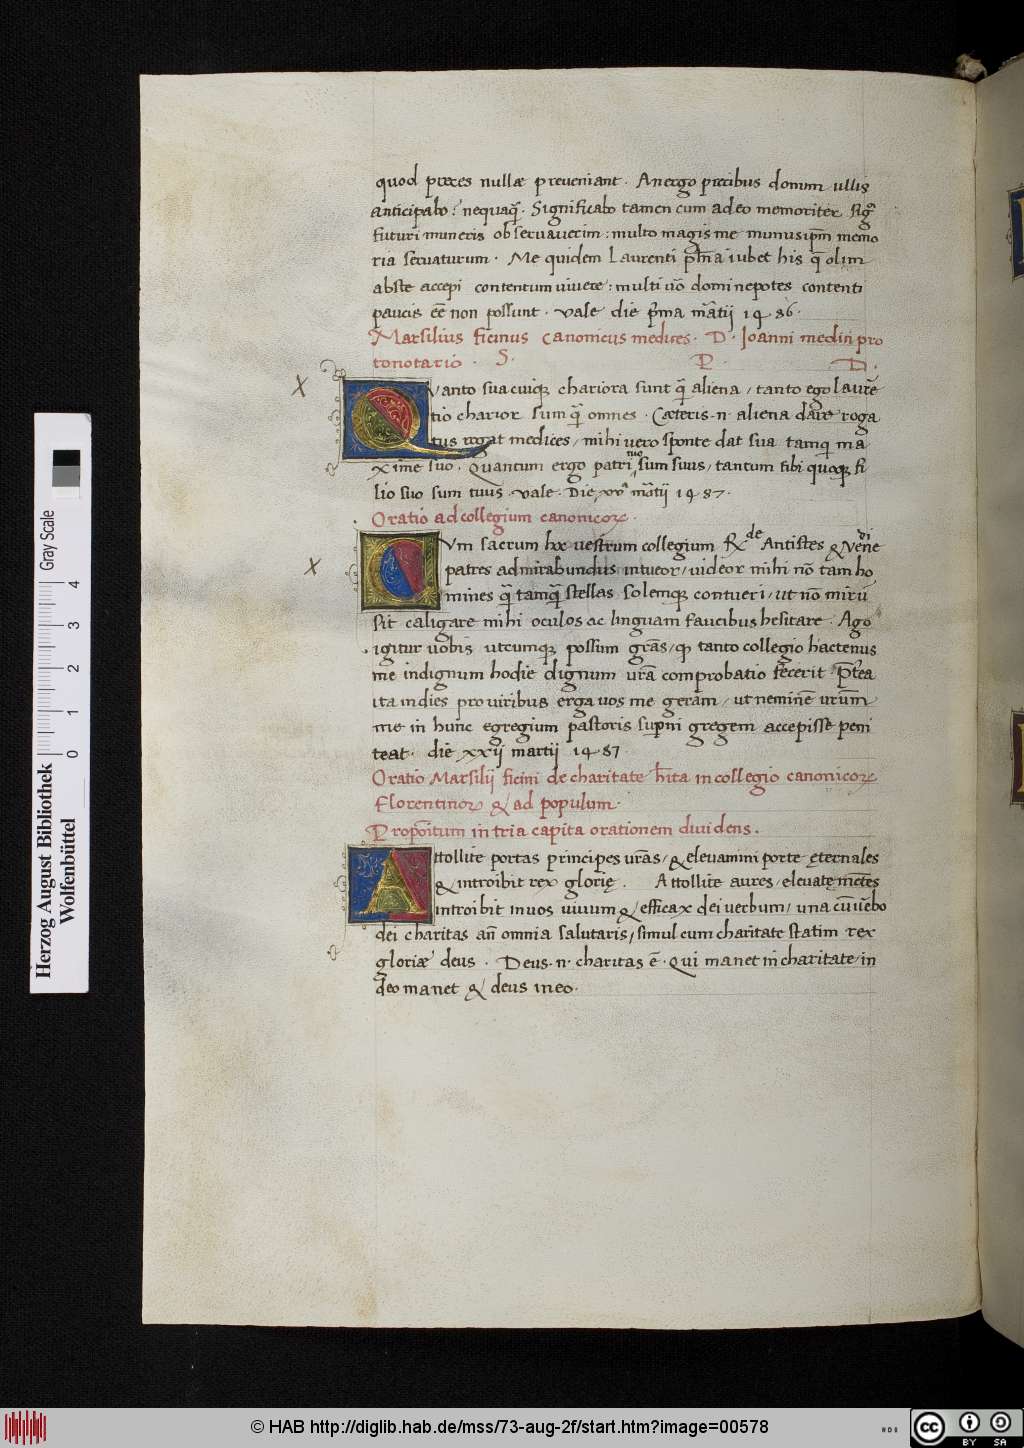 quod preces nullæ preveniant. An ergo precibus donum ullis
anticipabo? nequaq̃. Significabo tamen cum adeo memoriter
futuri muneris observaverim: multo magis me munus ip̃m memo
ria servaturum. Me quidem Laurenti iubet his q̃ olim
abste accepi contentum vivere: multi vo᷃ domi nepotes contenti
paucis eẽ non possunt. vale die p᷃ma ma᷃tii 1486.
Marsilius ficinus canonicus medices. D. Ioanni medici pro
tonotario. S. P. D.
X
Qvanto sua cuiq; chariora sunt q̃ aliena, tanto ego laurẽ
tio charior sum q̃ omnes. Cæteris .n. aliena dare roga
tus rogat medices, mihi vero sponte dat sua tamq̃ ma
xime suo. Quantum ergo patri tuo sum suus, tantum sibi quoq; fi
lio suo sum tuus. vale. Die ma᷃tii 1487.
Oratio ad collegium canonicoꝝ.
X
Cvm sacrum hoc vestrum collegium Rde Antistes & Vene di
patres admirabundus intueor, videor mihi nõ tam ho
mines q̃ tamq̃ stellas solemq; contueri, ut nõ mirũ
sit caligare mihi oculos ac linguam faucibus hesitare. Ago
igitur vobis utcumq; possum grãs, ꝙ tanto collegio hactenus
me indignum hodie dignum vr̃a comprobatio fecerit. P̃t̃ea
ita in dies pro viribus erga vos me geram, ut neminẽ vr̃um
me in hunc egregium pastoris sup̃ni gregem accepisse peni
teat. die xxij martii 1487.
Oratio Marsilij ficini de charitate h̃ita in collegio canonicoꝝ
Florentinoꝝ & ad populum.
Propositum in tria capita orationem dividens.
Attollite portas principes vr̃as, & elevamini porte ęternales
& introibit rex glorię. Attollite aures, elevate mẽtes
introibit in vos vivum & efficax dei verbum, una cũ v̓bo
dei charitas añ omnia salutaris, simul cum charitate statim rex
gloriæ deus. Deus .n. charitas ẽ. Qui manet in charitate, in
deo manet & deus in eo.
Herzog August Bibliothek
Wolfenbüttel
0 1 2 3 4
Gray Scale
© HAB http://diglib.hab.de/mss/73-aug-2f/start.htm?image=00578
cc BY SA